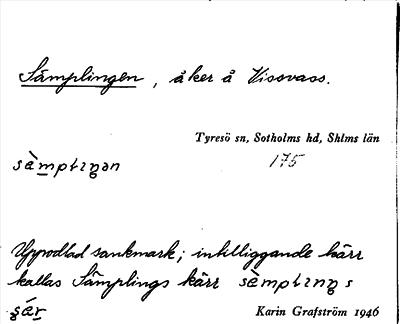 Sämplingen, åker å Vissvass.
Tyresö sn, Sotholms hd, Shlms län
175
sàmplıŋən
Uppodlad sankmark; intilliggande kärr
kallas Sämplings kärr sàmplıŋs
Karin Grafström 1946